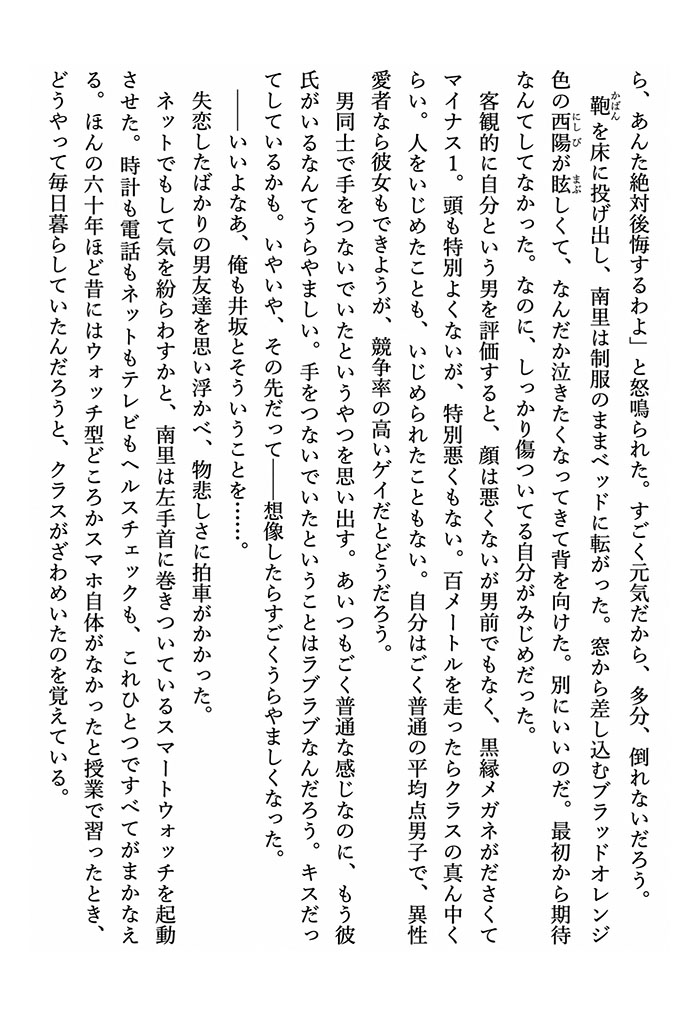 ら、あんた絶対後悔するわよ」と怒鳴られた。すごく元気だから、多分、倒れないだろう。
鞄を床に投げ出し、南里は制服のままベッドに転がった。窓から差し込むブラッドオレンジ
色の西陽が眩しくて、なんだか泣きたくなってきて背を向けた。別にいいのだ。最初から期待
なんてしてなかった。なのに、しっかり傷ついてる自分がみじめだった。
客観的に自分という男を評価すると、顔は悪くないが男前でもなく、黒縁メガネがださくて
マイナス1。頭も特別よくないが、特別悪くもない。百メートルを走ったらクラスの真ん中く
らい。人をいじめたことも、いじめられたこともない。自分はごく普通の平均点男子で、異性
愛者なら彼女もできようが、競争率の高いゲイだとどうだろう。
男同士で手をつないでいたというやつを思い出す。あいつもごく普通な感じなのに、もう彼
氏がいるなんてうらやましい。手をつないでいたということはラブラブなんだろう。キスだっ
てしているかも。いやいや、その先だって――想像したらすごくうらやましくなった。
――いいよなあ、俺も井坂とそういうことを……。
失恋したばかりの男友達を思い浮かべ、物悲しさに拍車がかかった。
ネットでもして気を紛らわすかと、南里は左手首に巻きついているスマートウォッチを起動
させた。時計も電話もネットもテレビもヘルスチェックも、これひとつですべてがまかなえ
る。ほんの六十年ほど昔にはウォッチ型どころかスマホ自体がなかったと授業で習ったとき、
どうやって毎日暮らしていたんだろうと、クラスがざわめいたのを覚えている。